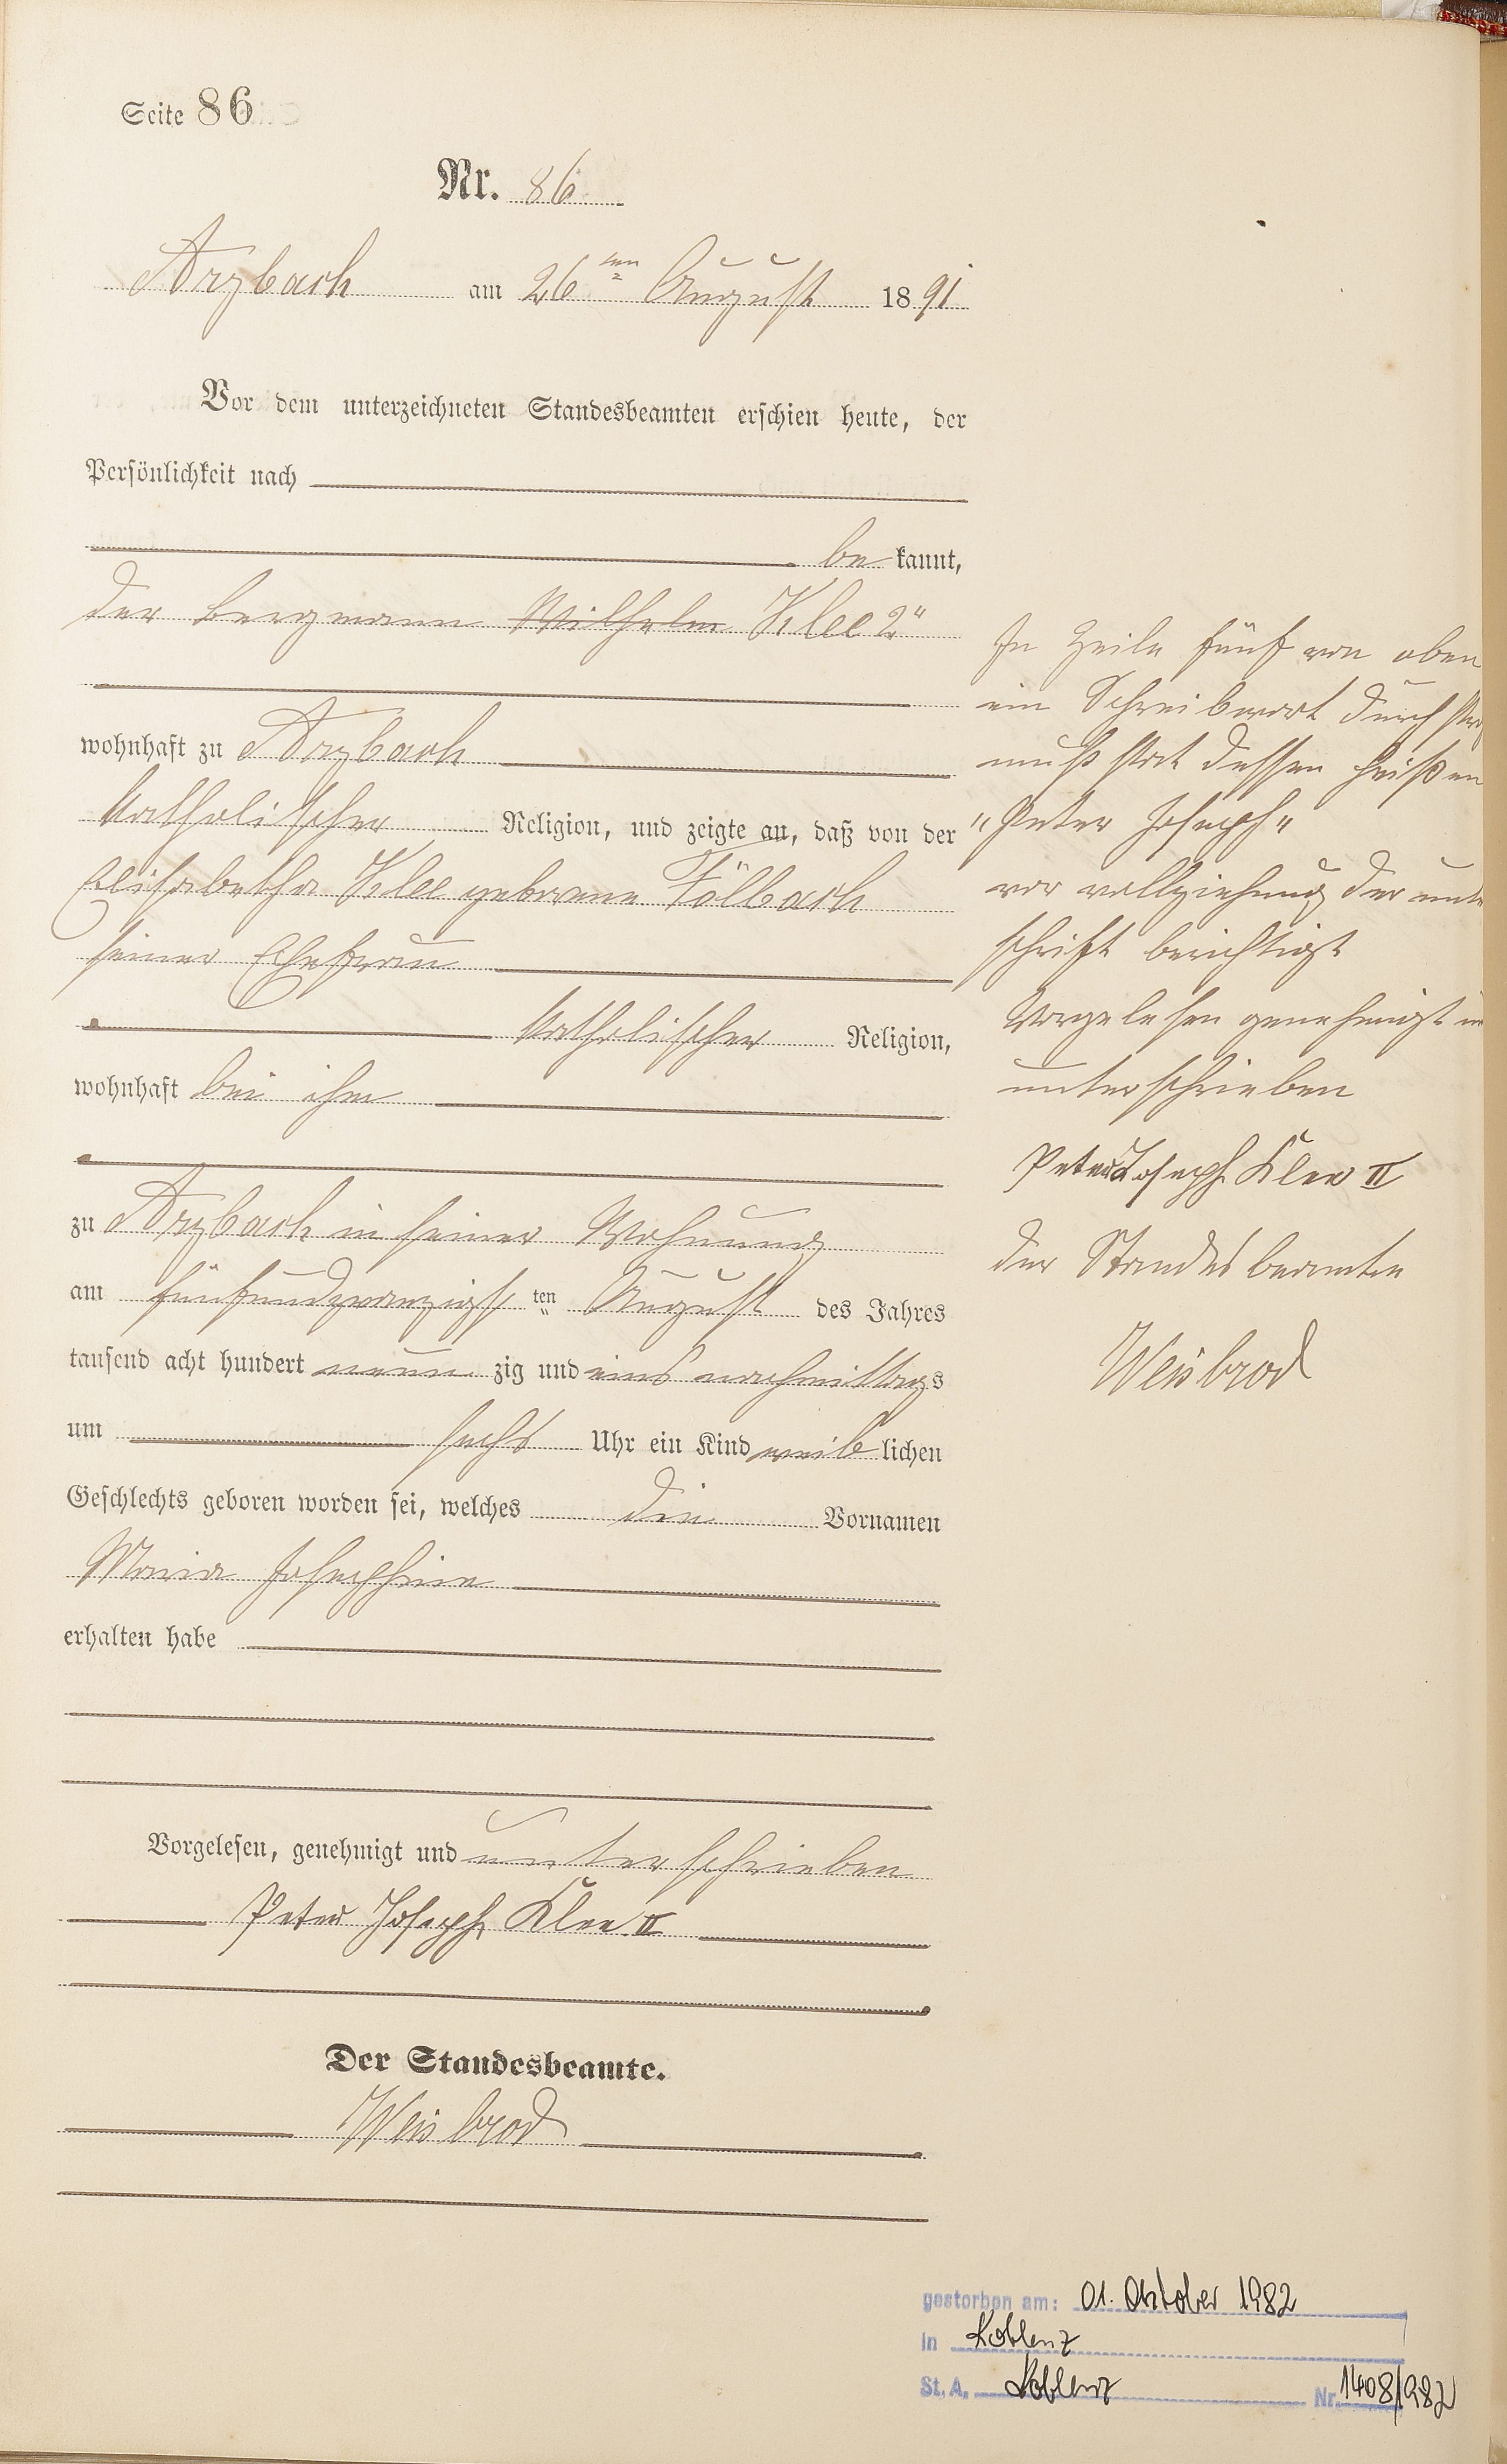 Seite 86
Nr. 86
Arzbach am 26ten August 1891
Vor dem unterzeichneten Standesbeamten erschien heute, der
Persönlichkeit nach
be kannt,
der Bergmann Wilhelm Klee 2"
wohnhaft zu Arzbach
katholischer Religion, und zeigte an, daß von der
Elisabetha Klee geborene Föllbach
seiner Ehefrau
katholischer Religion,
wohnhaft bei ihm
zu Arzbach in seiner Wohnung
am fünfundzwanzigsten August des Jahres
tausend acht hundert neun zig und eins nachmittags
um sechs Uhr ein Kind weib lichen
Geschlechts geboren worden sei, welches die Vornamen
Maria Josephine
erhalten habe
Vorgelesen, genehmigt und unterschrieben
Peter Joseph Klee II
Der Standesbeamte.
Weisbrod
In Zeile fünf von oben
ein Schreibwort durch
muß statt dessen heißen
"Peter Joseph"
vor vollziehung der unter
schrift berichtigt
Vorgelesen genehmigt
unterschrieben
Peter Joseph Klee II
der Standesbeamte
Weisbrod
gestorben am: 01. Oktober 1982
in Koblenz
St. A. Koblenz Nr. 1408/1982